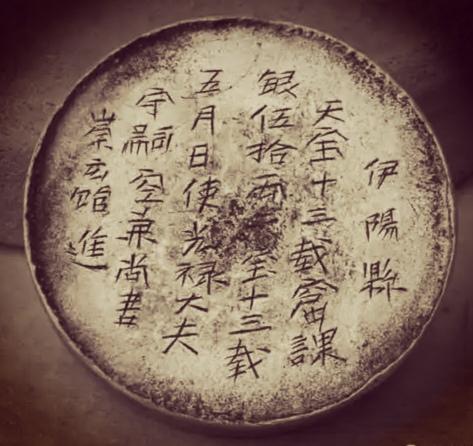 伊陽縣
天全十三載窟課
銀伍拾兩全十三載
五月日使光禄大夫
守嗣空兼尚書
崇玄館進